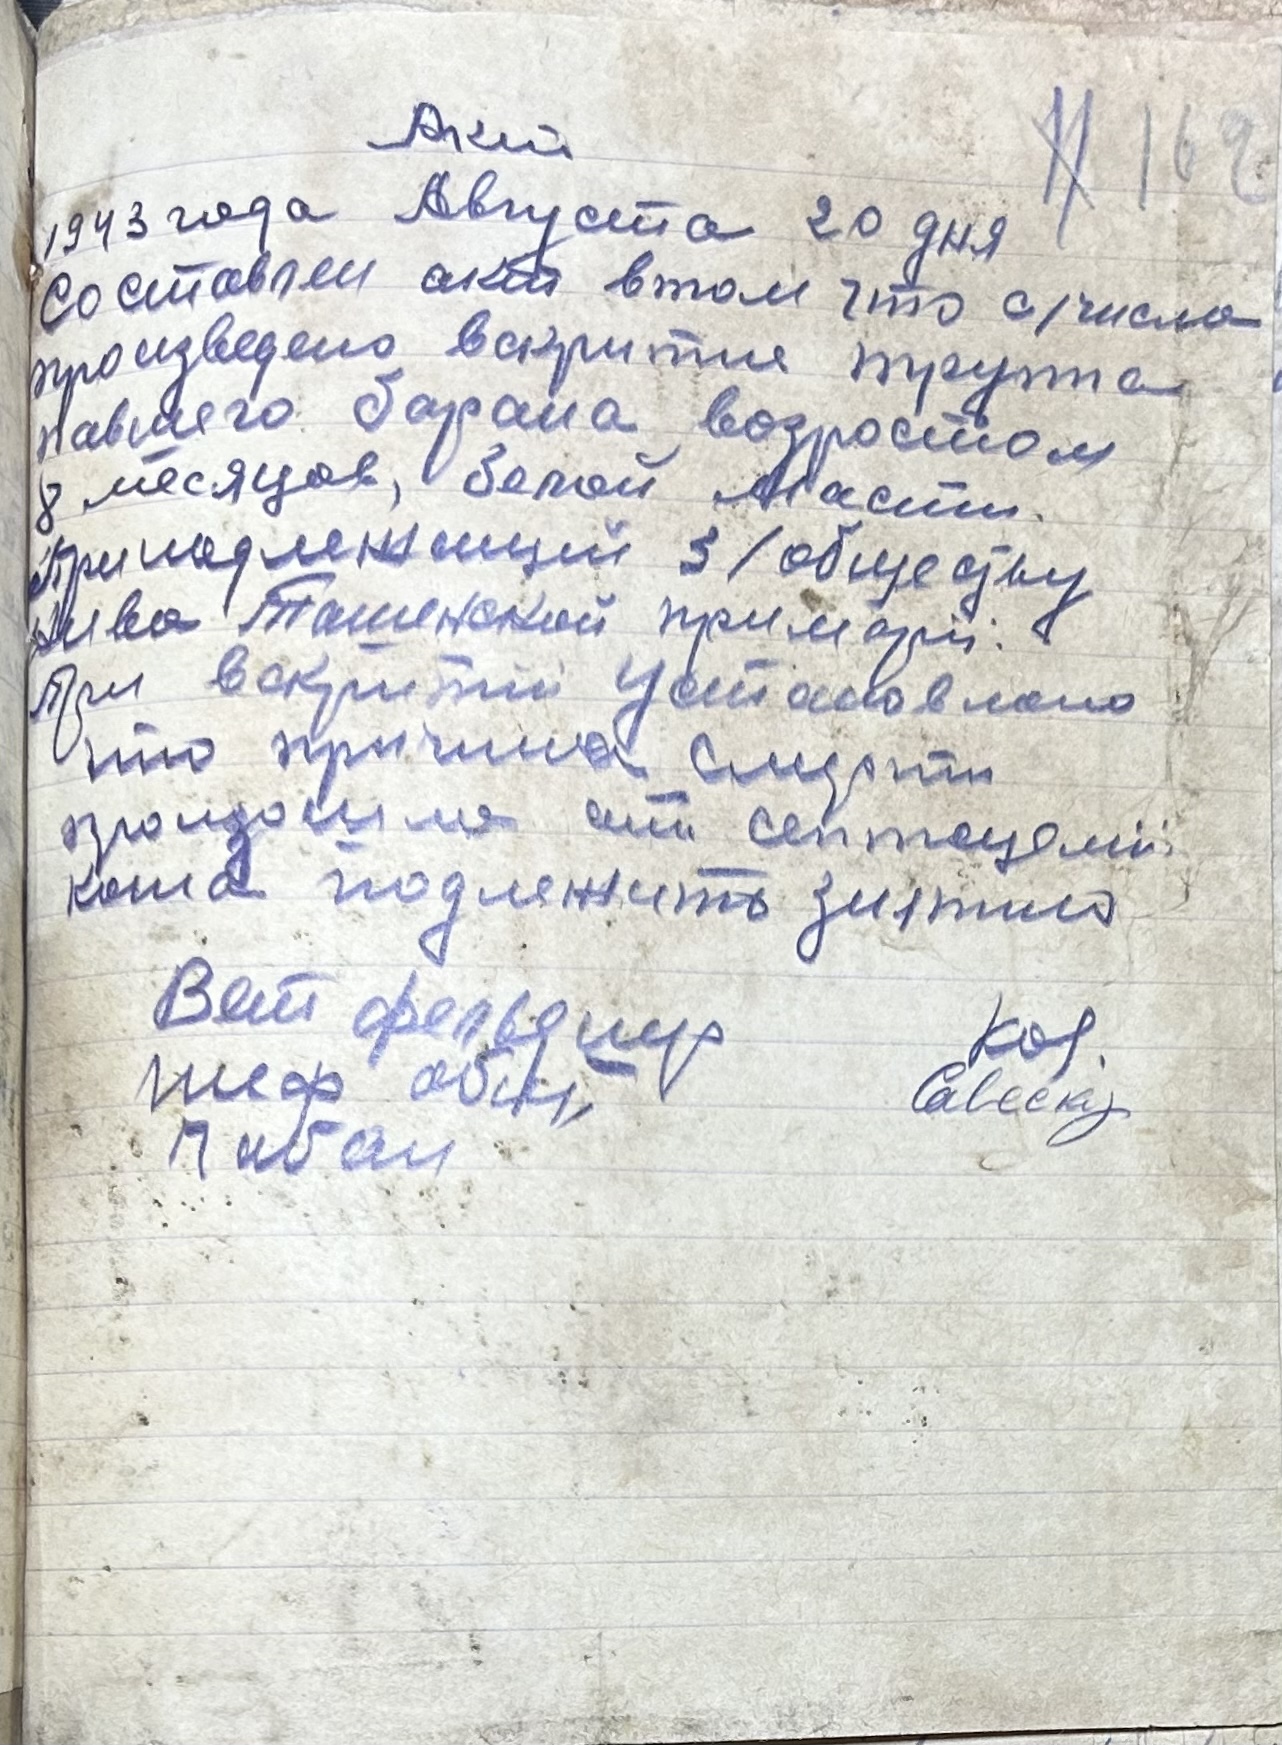 Акт
162
1943 года Августа 20 дня
Составлен акт втом что с/числа
произведено вскрытие трупа
павшего барана возростом
8 месяцов, белой масти.
Принадлежищий з/обществу
Нива Ташинской примарii.
При вскрытii установлено
что причина смерти
произошла от септоцемii.
кожа подлежить
Вет фельдшер
шеф общ,
Кол.
Савеску